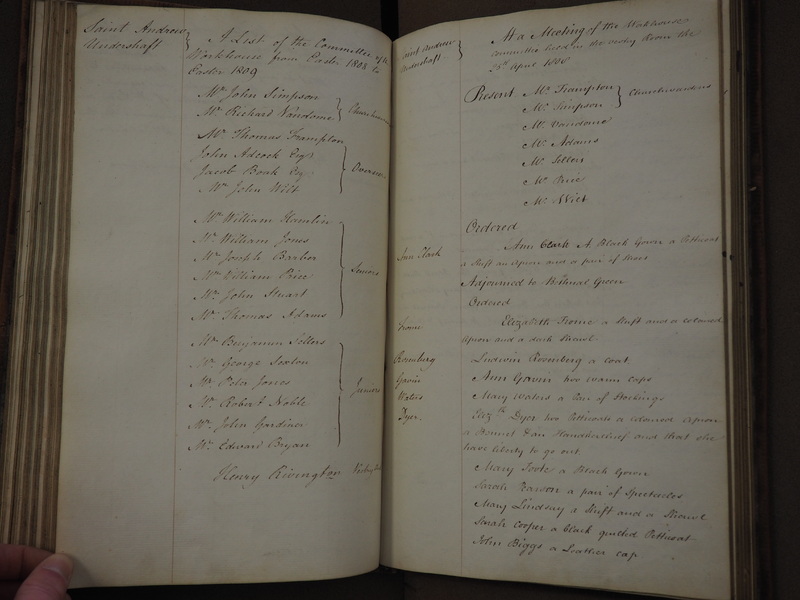 Saint Andrew
Undershaft
A List of the Committee of the
Workhouse from Easter 1808 to
Easter 1809
Mr John Simpson
Mr Richard Vandome
Churchwardens
Mr Thomas Frampton
John Adcock Esqr
Jacob Bonk Esqr
Mr John Wilt
Overseers
Mr William Hamlin
Mr William Jones
Mr Joseph Barber
Mr William Price
Mr John Stuart
Mr Thomas Adams
Seniors
Mr Benjamin Sellers
Mr George Sexton
Mr Peter Jones
Mr Robert Noble
Mr John Gardiner
Mr Edward Bryan
Juniors
Henry Rivington
Saint Andrew
Undershaft
At a Meeting of the Workhouse
Committee held in the vestry Room the
28th April 1808
Present Mr Frampton
Mr Simpson
Churchwardens
Mr Vandome
Mr Adams
Mr Sellers
Mr Price
Mr Wilt
Ordered
Ann Clark
Ann Clark A Black Gown a Petticoat
a Shift an Apron and a pair of Shoes
Adjourned to Bethnal Green
Ordered
Elizabeth a Shift and a coloured
Apron and a dark Shawl
Romberg
Ludwin Romberg a coat
Gavin
Ann Gavin two warm caps
Waters
Mary Waters a Pair of Stockings
Dyer
Elizth Dyer two Petticoats a coloured Apron
a Bonnet Handkerchief and that she
have liberty to go out
Mary Foote a Black Gown
Sarah Pearson a pair of Spectacles
Mary Lindsay a Shift and a Shawl
Sarah Cooper a black quilted Petticoat
John Biggs a Leather cap